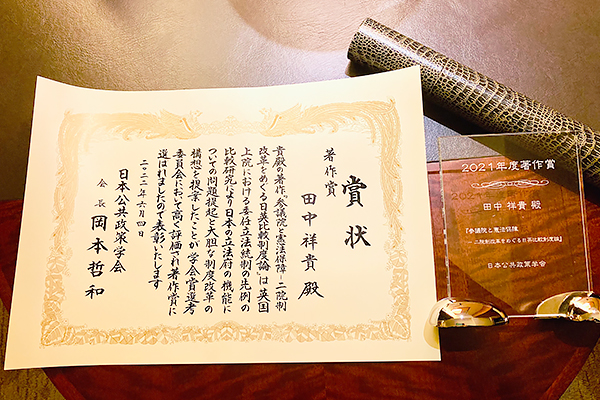 賞状
著作賞
田中祥貴 殿
貴殿の著作「参議院と憲法保障-二院制
改革をめぐる日英比較制度論」は英国
上院における委任立法統制の先例の
比較研究により日本の立法府の機能に
ついての問題提起と大胆な制度改革の
構想を提案したことが学会賞選考
委員会において高く評価され著作賞に
選ばれましたので表彰いたします
二〇二二年六月四日
日本公共政策学会
会長 岡本哲和
2021年度著作賞
田中 祥貴 殿
『参議院と憲法保障
-二院制改革をめぐる日英比較制度論』
日本公共政策学会